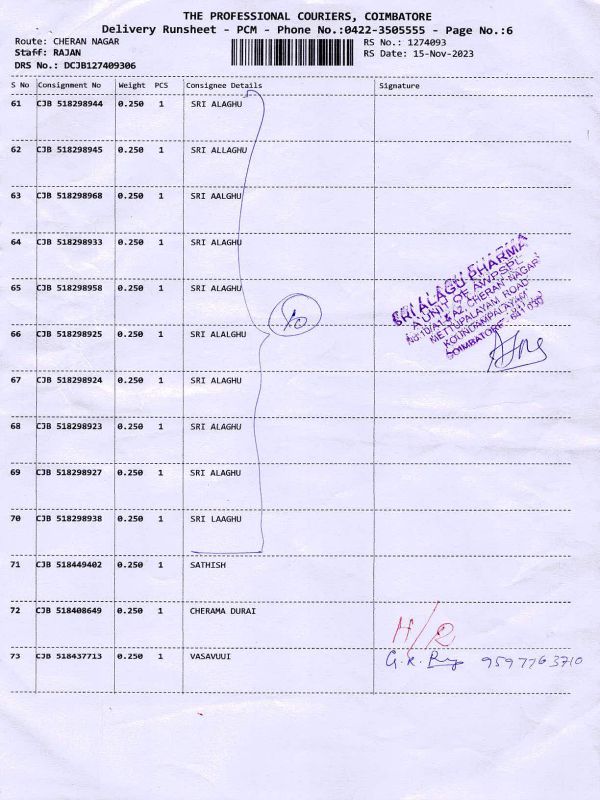 THE PROFESSIONAL COURIERS, COIMBATORE
Delivery Runsheet - PCM - Phone No.:0422-3505555 - Page No.:6
Route: CHERAN NAGAR RS No.: 1274093
Staff: RAJAN RS Date: 15-Nov-2023
DRS No.: DCJB127409306
S No Consignment No Weight PCS Consignee Details Signature
61 CJB 518298944 0.250 1 SRI ALAGHU
62 CJB 518298945 0.250 1 SRI ALLAGHU
63 CJB 518298968 0.250 1 SRI AALGHU
64 CJB 518298933 0.250 1 SRI ALAGHU
65 CJB 518298958 0.250 1 SRI ALAGHU
66 CJB 518298925 0.250 1 SRI ALALGHU
10
SRI ALAGU PHARMA
A UNIT OF AWPSPL
CHERAN NAGAR
METTUPALAYAM ROAD
KOUNDAMPALAYAM
COIMBATORE
67 CJB 518298924 0.250 1 SRI ALAGHU
68 CJB 518298923 0.250 1 SRI ALAGHU
69 CJB 518298927 0.250 1 SRI ALAGHU
70 CJB 518298938 0.250 1 SRI LAAGHU
71 CJB 518449402 0.250 1 SATHISH
72 CJB 518408649 0.250 1 CHERAMA DURAI
H/R
73 CJB 518437713 0.250 1 VASAVUUI G.K. 9597763710